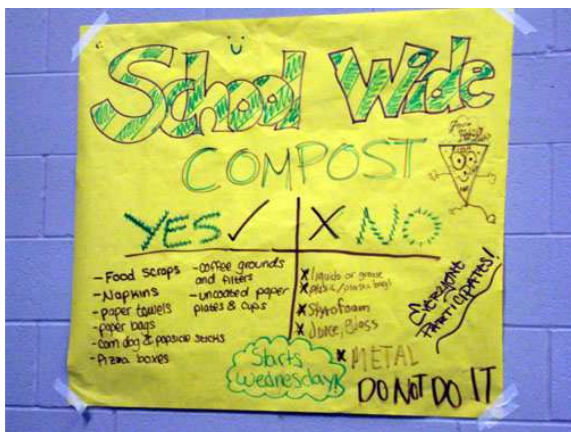 School Wide
COMPOST
YES ✓
X NO
- Food Scraps
- Napkins
- paper towels
- paper bags
- corn dog & popsicle sticks
- Pizza boxes
- coffee grounds
and filters
- uncoated paper
plates & cups
X liquids or grease
X plastic/plastic bags
X Styrofoam
X Juice, Glass
X METAL
DO NOT DO IT
Starts
Wednesday!
EVERYONE
PARTICIPATES!